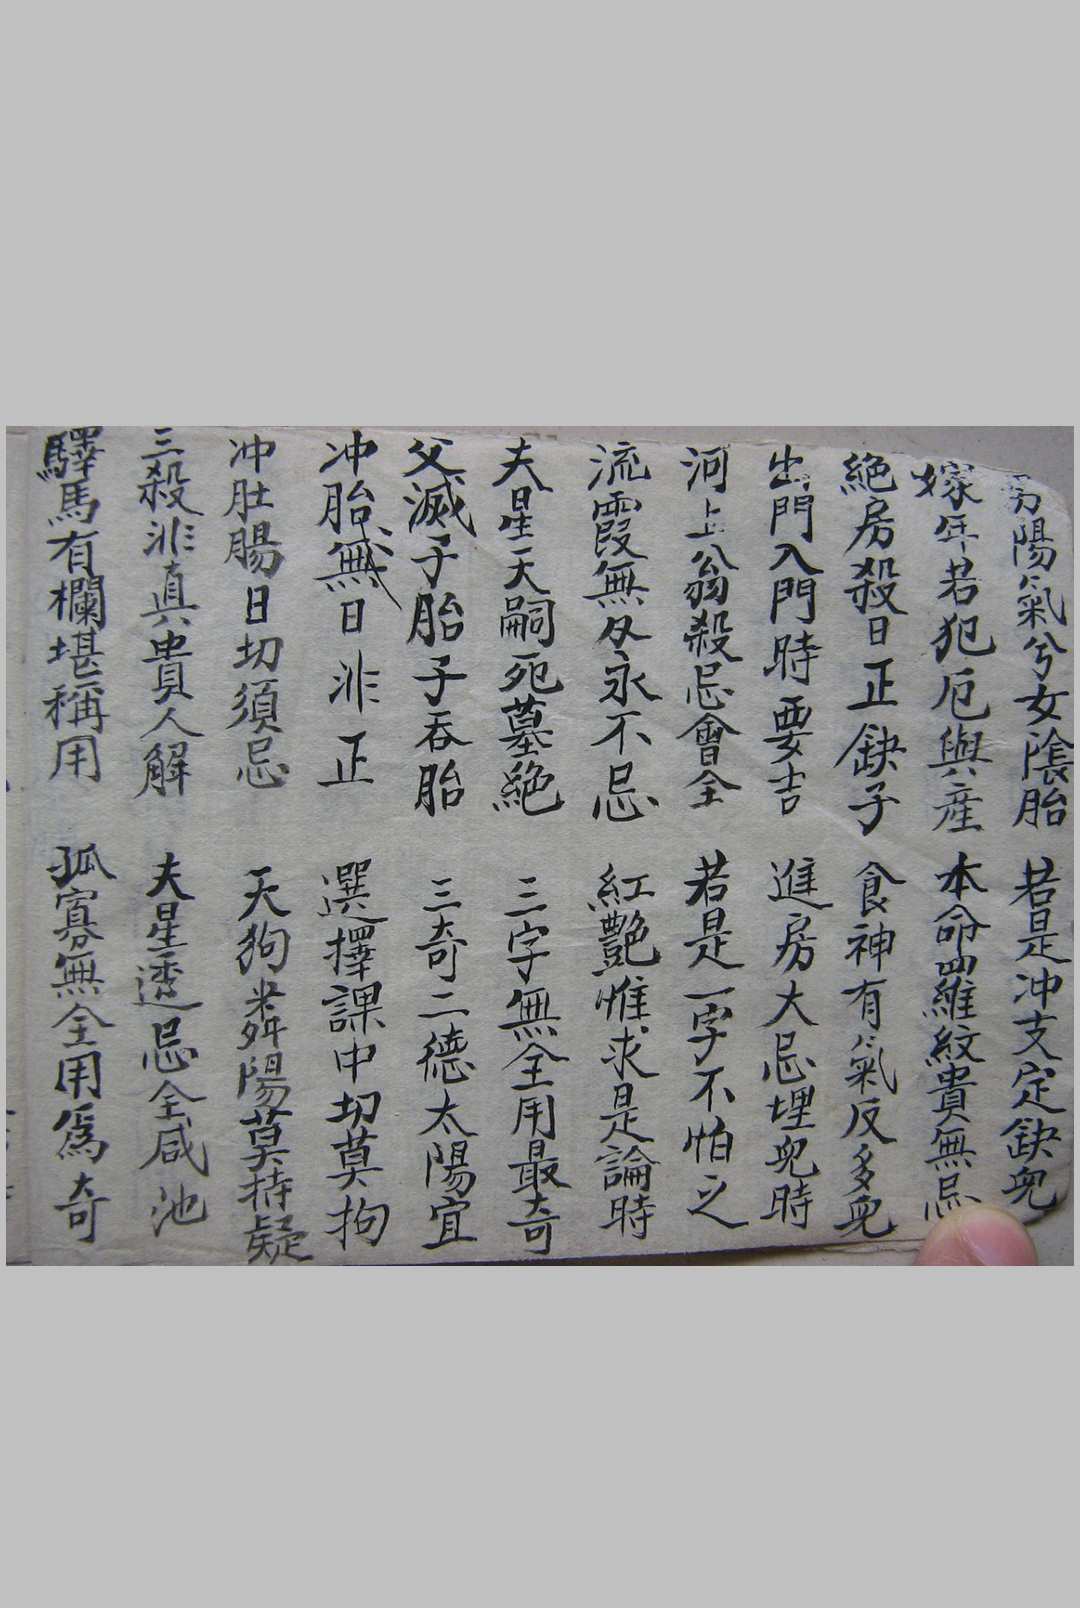 男陽氣兮女陰胎 若是冲支定缺兜
嫁年若犯厄與產 本命羅紋貴無忌
絕房殺日正缺子 食神有氣反多兜
出門入門時要吉 進房大忌埋兜時
河上翁殺忌會全 若是一字不怕之
流霞無刃永不忌 紅艷惟求是論時
夫星天嗣死墓絕 三字無全用最奇
父滅子胎子吞胎 三奇二德太陽宜
冲胎無日非正 選擇課中切莫拘
冲肚腸日切須忌 天狗麟陽莫持疑
三殺非真貴人解 夫星透忌全咸池
驛馬有欄堪稱用 孤寡無全用為奇